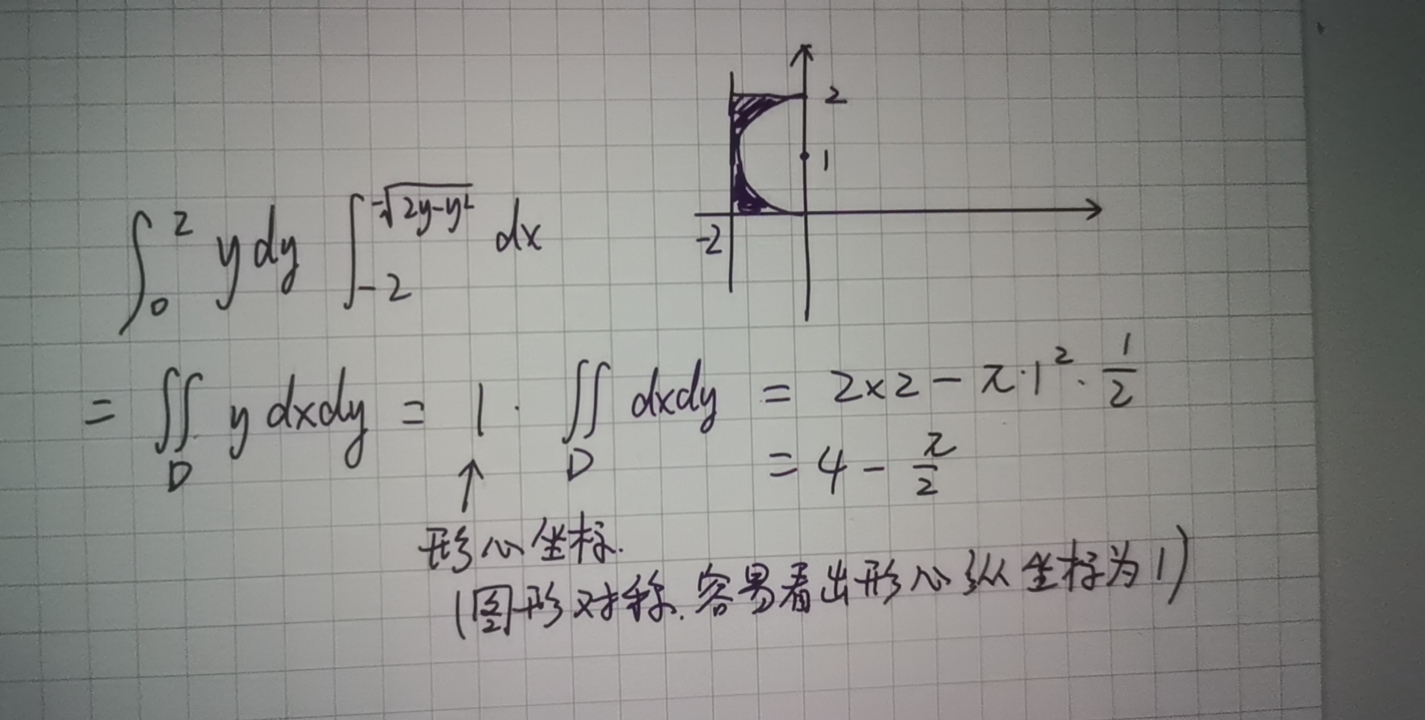 2
1
-2
∫₀² y dy ∫₋₂^(-√(2y-y²)) dx
= ∬_D y dxdy = 1 · ∬_D dxdy = 2×2 - π·1²·1/2
= 4 - π/2
形心坐标.
(图形对称.容易看出形心纵坐标为1)